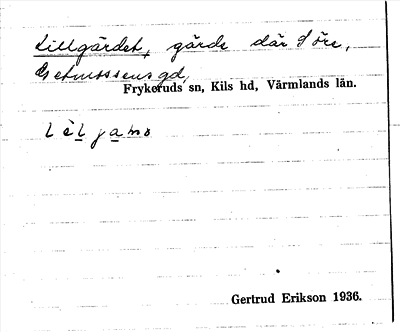 Lillgärdet, gärde där S öre,
gd,
Frykeruds sn, Kils hd, Värmlands län.
Gertrud Erikson 1936.